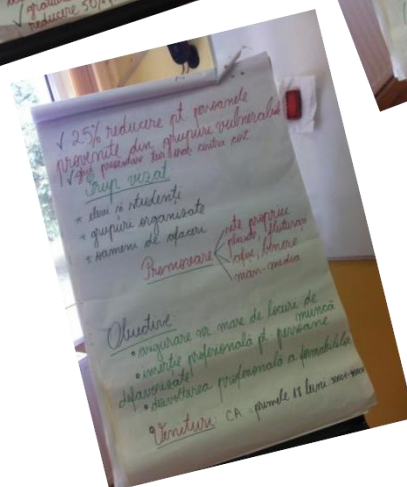 reducere 50%
✓ 25% reducere pt. persoanele
provenite din grupuri vulnerabile
✓
Grup vizat
* elevi și studenți
* grupuri organizate
* oameni de afaceri
Promovare
site propriu
pliante, fluturași
afișe, banere
mass-media
Obiective
• asigurare nr mare de locuri de
muncă
• inserție profesională pt. persoane
defavorizate
• dezvoltarea profesională a
Venituri: CA primele 18 luni